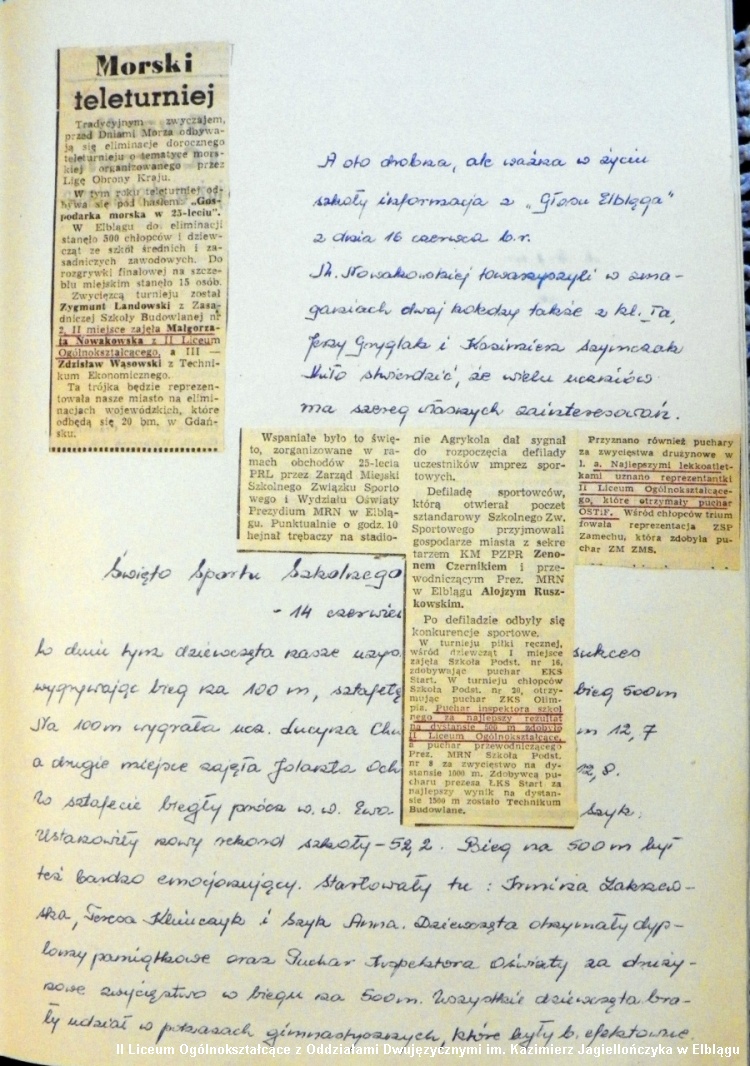 Morski
teleturniej
Tradycyjnym zwyczajem,
przed Dniami Morza odbywa-
ją się eliminacje dorocznego
teleturnieju o tematyce mors-
kiej organizowanego przez
Ligę Obrony Kraju.
W tym roku teleturniej od-
bywa się pod hasłem: „Gos-
podarka morska w 25-leciu".
W Elblągu do eliminacji
stanęło 300 chłopców i dziew-
cząt ze szkół średnich i za-
sadniczych zawodowych. Do
rozgrywki finałowej na szcze-
blu miejskim stanęło 15 osób.
Zwycięzcą turnieju został
Zygmunt Landowski z Zasa-
dniczej Szkoły Budowlanej nr
2, II miejsce zajęła Małgorza-
ta Nowakowska z II Liceum
Ogólnokształcącego, a III —
Zdzisław Wąsowski z Techni-
kum Ekonomicznego.
Ta trójka będzie reprezen-
towała nasze miasto na elimi-
nacjach wojewódzkich, które
odbędą się 20 bm. w Gdań-
sku.
A oto drobna, ale ważna w życiu
szkoły informacja z „Głosu Elbląga"
z dnia 16 czerwca b.r.
M. Nowakowskiej towarzyszyli w zma-
ganiach dwaj koledzy także z kl. Ia,
Jerzy Gryglak i Kazimierz Szymczak
Miło stwierdzić, że wielu uczniów
ma szereg własnych zainteresowań.
Wspaniałe było to świę-
to, zorganizowane w ra-
mach obchodów 25-lecia
PRL przez Zarząd Miejski
Szkolnego Związku Sporto
wego i Wydziału Oświaty
Prezydium MRN w Elblą-
gu. Punktualnie o godz. 10
hejnał trębaczy na stadio-
nie Agrykola dał sygnał
do rozpoczęcia defilady
uczestników imprez spor-
towych.
Defiladę sportowców,
którą otwierał poczet
sztandarowy Szkolnego Zw.
Sportowego przyjmowali
gospodarze miasta z sekre
tarzem KM PZPR Zeno-
nem Czernikiem i prze-
wodniczącym Prez. MRN
w Elblągu Alojzym Rusz-
kowskim.
Po defiladzie odbyły się
konkurencje sportowe.
W turnieju piłki ręcznej,
wśród dziewcząt I miejsce
zajęła Szkoła Podst. nr 16,
zdobywając puchar EKS
Start. W turnieju chłopców
Szkoła Podst. nr 20, otrzy-
mując puchar ZKS Olim-
pia. Puchar inspektora szkol
nego za najlepszy rezultat
na dystansie 500 m zdobyło
II Liceum Ogólnokształcące,
a puchar przewodniczącego
Prez. MRN Szkoła Podst.
nr 8 za zwycięstwo na dy-
stansie 1000 m. Zdobywcą pu-
charu prezesa ŁKS Start za
najlepszy wynik na dystan-
sie 1500 m zostało Technikum
Budowlane.
Przyznano również puchary
za zwycięstwa drużynowe w
l. a. Najlepszymi lekkoatlet-
kami uznano reprezentantki
II Liceum Ogólnokształcące-
go, które otrzymały puchar
OSTiF. Wśród chłopców trium
fowała reprezentacja ZSP
Zamechu, która zdobyła pu-
char ZM ZMS.
Święto Sportu Szkolnego
- 14 czerwiec
W dniu tym dziewczęta nasze sukces
wygrywając bieg na 100 m, sztafetę bieg 500m
Na 100m wygrała ucz. Lucyna 12,7
a drugie miejsce zajęła Jolanta 12,8.
W sztafecie biegły prócz w.w. Ewa Szyk.
Ustanowiły nowy rekord szkoły - 52,2. Bieg na 500m był
też bardzo emocjonujący. Startowały tu: Irmina Zakrzew-
ska, Teresa Klimczyk i Szyk Anna. Dziewczęta otrzymały dyp-
lomy pamiątkowe oraz Puchar Inspektora Oświaty za druży-
nowe zwycięstwo w biegu na 500m. Wszystkie dziewczęta bra-
ły udział w pokazach gimnastycznych, które były b. efektowne.
II Liceum Ogólnokształcące z Oddziałami Dwujęzycznymi im. Kazimierz Jagiellończyka w Elblągu